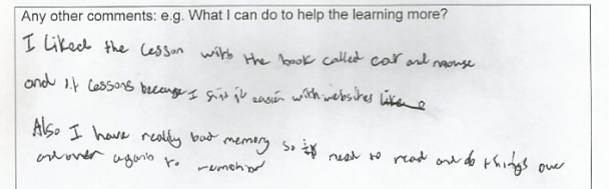 Any other comments: e.g. What I can do to help the learning more?
I liked the lesson with the book called cat and mouse
and I.t lessons because I find it easier with websites
Also I have really bad memory so need to read and do things over
and over again to remember